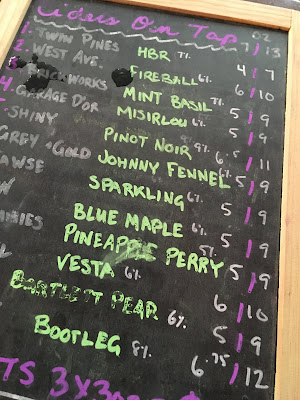 Ciders On Tap OZ
7 | 13
1. TWIN PINES HBR 7% 4 | 7
2. WEST AVE. FIREBALL 6% 6 | 10
BRICKWORKS MINT BASIL 7% 5 | 9
4. GARAGE D'OR MISIRLOU 6% 5 | 9
SHINY PINOT NOIR 9% 6.5 | 11
GREY + GOLD JOHNNY FENNEL 6% 5 | 9
AWSE SPARKLING 6% 5 | 9
BLUE MAPLE 6% 5 | 9
MIES PINEAPPLE PERRY 5% 5 | 9
VESTA 6% 6 | 10
BARTLETT PEAR 6% 5 | 9
BOOTLEG 8% 6.75 | 12
TS 3X3oz